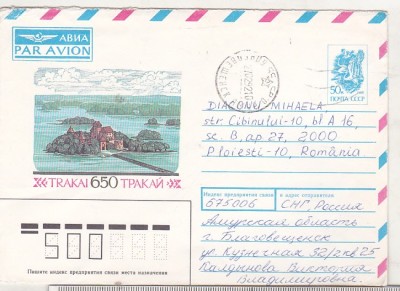 АВИА
PAR AVION
50к
ПОЧТА СССР
DIACONU MIHAELA
str. Cibinului-10, bl A 16,
sc. B, ap. 27, 2000
Ploiesti-10, România
TRAKAI 650 ТРАКАЙ
Индекс предприятия связи и адрес отправителя
675006 СНГ, Россия
Амурская область
г. Благовещенск
ул Кузнечная кв25
Виктория
Владимировна
500
Пишите индекс предприятия связи места назначения